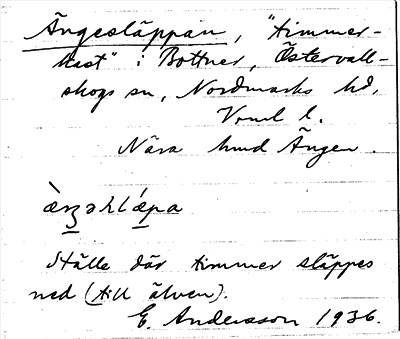 Ängesläppan, "timmer-
kast" i Bottner, Östervall-
skogs sn, Nordmarks hd,
Vrml l.
Nära hmd Ängen.
ὰrʒəhlǽpa
Ställe där timmer släppes
ned (till älven).
E. Andersson 1936.